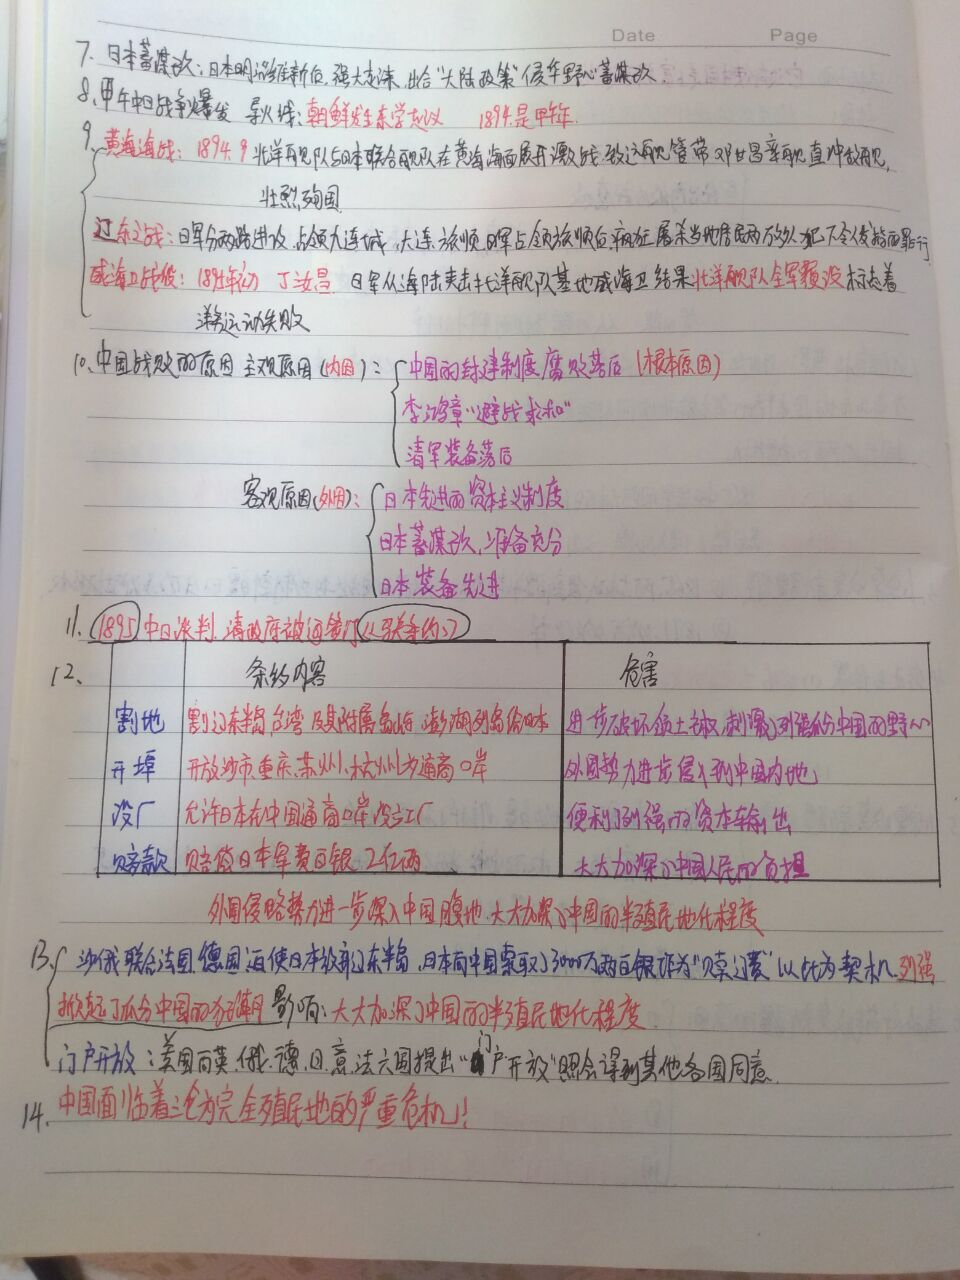 Date Page
7. 日本蓄谋已久：日本明治维新后，强大起来，出台"大陆政策"侵华野心蓄谋已久.
8. 甲午中日战争爆发 导火线：朝鲜发生东学党起义 1894是甲午年.
9. 黄海海战：1894.9 北洋舰队与日本联合舰队在黄海海面展开激战，致远舰管带邓世昌率舰直冲敌舰，
壮烈殉国.
辽东之战：日军分两路进攻，占领大连城，大连、旅顺 日军占领旅顺后，疯狂屠杀当地居民两万多人 犯下令人发指的罪行.
威海卫战役：1895年初 丁汝昌 日军从海陆夹击北洋舰队基地威海卫 结果北洋舰队全军覆没 标志着
洋务运动失败
10. 中国战败的原因 主观原因(内因)： 中国的封建制度腐败落后 (根本原因)
李鸿章"避战求和"
清军装备落后
客观原因(外因)： 日本先进的资本主义制度
日本蓄谋已久，准备充分
日本装备先进
11. 1895 中日谈判 清政府被迫签订《马关条约》
12. 条约内容 危害
割地 割辽东半岛 台湾 及其附属岛屿 澎湖列岛给日本 进一步破坏领土主权，刺激了列强瓜分中国的野心
开埠 开放沙市、重庆、苏州、杭州为通商口岸 外国势力进一步侵入到中国内地
设厂 允许日本在中国通商口岸设立工厂 便利了列强的资本输出
赔款 赔偿日本军费白银2亿两 大大加深了中国人民的负担
外国侵略势力进一步深入中国腹地 大大加深了中国的半殖民地化程度
13. 沙俄联合法国、德国迫使日本放弃辽东半岛，日本向中国索取了3000万两白银作为"赎辽费"以此为契机，列强
掀起了瓜分中国的狂潮 影响：大大加深了中国的半殖民地化程度
门户开放：美国向英、俄、德、日、意、法六国提出"门户开放"照会得到其他各国同意.
14. 中国面临着沦为完全殖民地的严重危机！